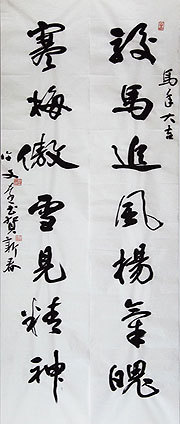 馬年大吉
駿馬追風楊氣魄
寒梅傲雪見精神
書賀新春